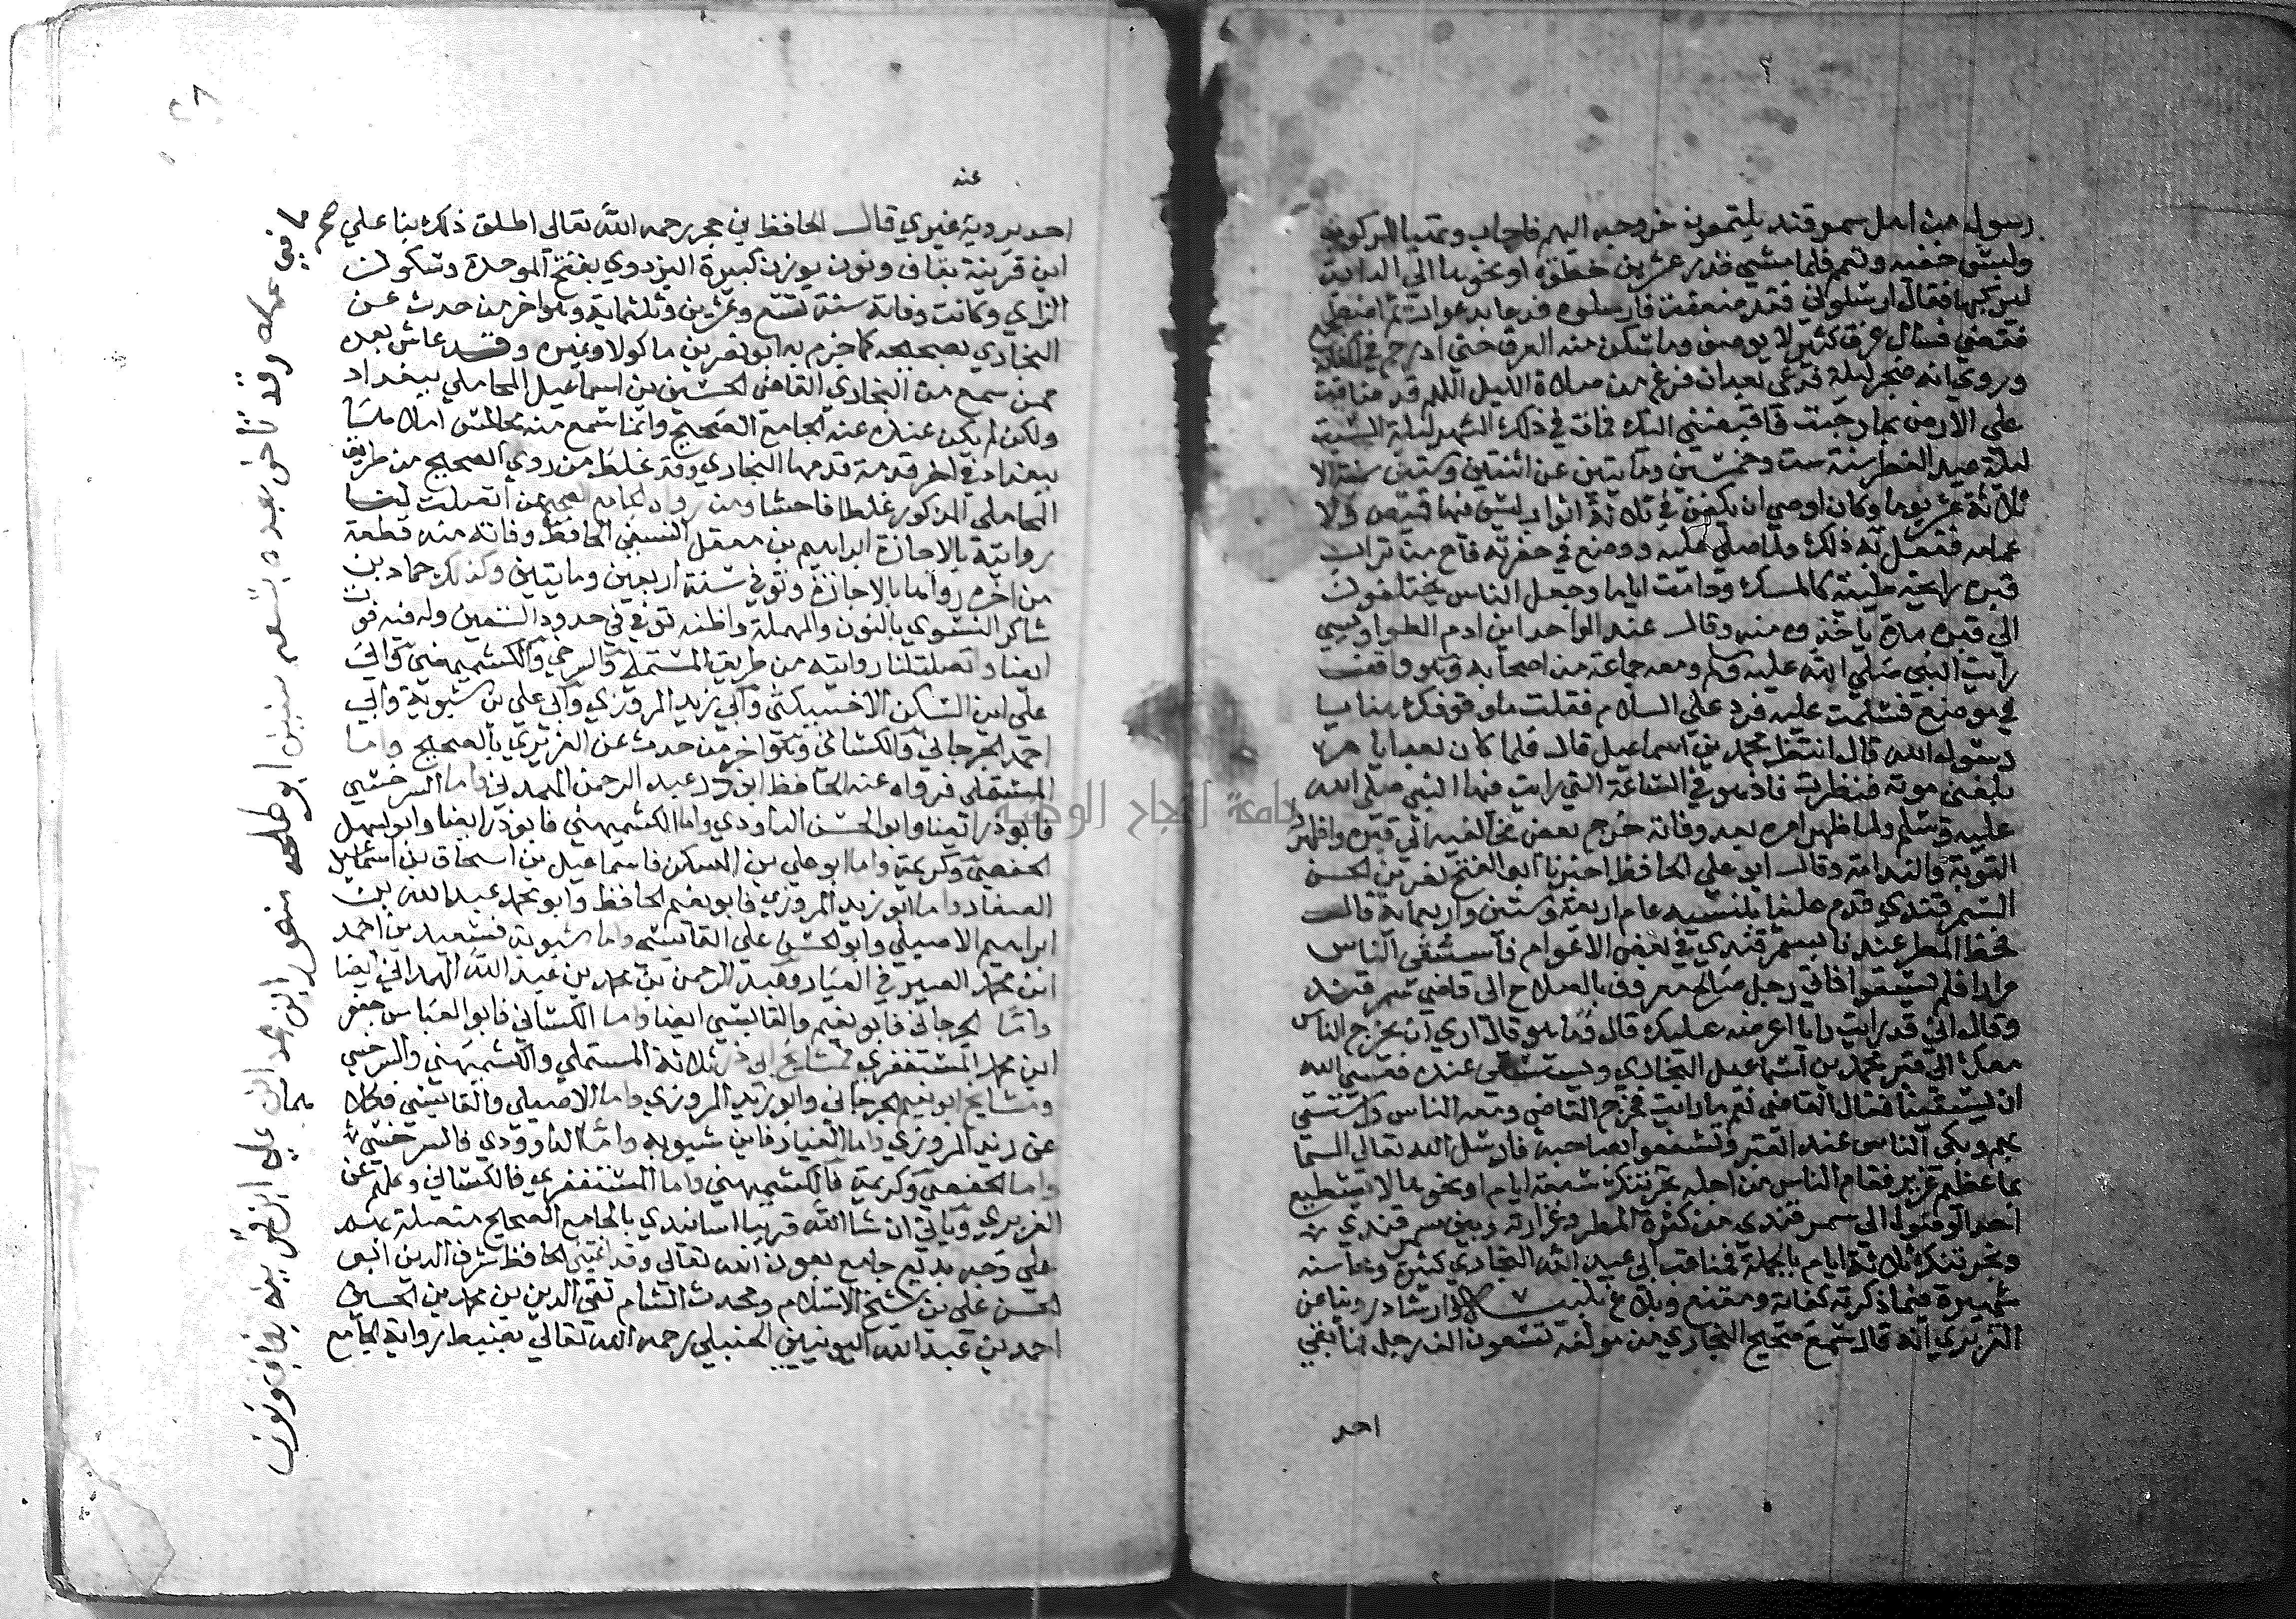 رسول من اهل سمرقند يلتمسون خروجه اليهم فاجاب وتهيا للركوب
ولبس خفيه وتعمم فلما مشي قدر عشرين خطوة او نحوها الي الدابة
ليركبها فقال ارسلوني فقد ضعفت فارسلوه فدعا بدعوات ثم اضطجع
فقضي فسال عرق كثير لا يوصف وما سكن منه العرق حتي ادرج في اكفانه
وروي انه ضجر ليلة فدعي بعد ان فرغ من صلاة الليل اللهم قد ضاقت
علي الارض بما رحبت فاقبضني اليك فمات في ذلك الشهر ليلة السبت
ليلة عيد الفطر سنة ست وخمسين ومايتين عن اثنتين وستين سنة الا
ثلاثة عشر يوما وكان اوصي ان يكفن في ثلاثة اثواب ليس فيها قميص ولا
عمامه ففعل به ذلك ولما صلي عليه ووضع في حفرته فاح من تراب
قبره رايحة طيبة كالمسك ودامت اياما وجعل الناس يختلفون
الي قبره مدة ياخذوه منه وقال عبد الواحد ابن ادم الطواويسي
رايت النبي صلي الله عليه وسلم ومعه جماعة من اصحابه وهو واقف
في موضع فسلمت عليه فرد علي السلام فقلت ما وقوفك هنا يا
رسول الله قال انتظر محمد بن اسماعيل قال فلما كان بعد ايام
بلغني موته فنظرت فاذا هو في الساعة التي رايت فيها النبي صلي الله
عليه وسلم ولما ظهر امره بعد وفاته خرج بعض مخالفيه الي قبره واظهر
التوبة والندامة وقال ابو علي الحافظ اخبرنا ابو الفتح نصر بن الحسن
السمرقندي قدم علينا بلنسيه عام اربعة وستين واربعماية قال
قحط المطر عندنا بسمرقندي في بعض الاعوام فاستسقي الناس
مرارا فلم يسقوا فاتي رجل صالح معروف بالصلاح الي قاضي سمرقند
وقال اني قد رايت رايا اعرضه عليك قال وما هو قال اري ان تخرج الناس
معك الي قبر محمد بن اسماعيل البخاري ويستسقي عنده فعسي الله
ان يسقينا فقال القاضي نعم ما رايت فخرج القاضي ومعه الناس واستسقي
بهم وبكي الناس عند القبر وتشفعوا بصاحبه فارسل الله تعالي السما
بما عظيم غزير فقام الناس من اجله بخرتنك سبعة ايام او نحوها لا يستطيع
احد الوصول الي سمرقندي من كثرة المطر وغزارته وبين سمرقندي
وخرتنك ثلاثة ايام بالجملة فمناقب ابي عبد الله البخاري كثيرة ومحاسنه
شهيرة فيما ذكرته كفاية ومقنع وبلاغ تنبيه وارشاد روينا عن
الفربري انه قال سمع صحيح البخاري من مولفه تسعون الف رجل فما بقي
احد
عنه
احد يرويه غيري قال الحافظ بن حجر رحمه الله تعالي اطلق ذلك بنا علي
ابن قرينة بقاف ونون بوزن كبيرة البزدوي بفتح الموحدة وسكون
الزاي وكانت وفاته سنة تسع وعشرين وثلثماية وهو اخر من حدث عن
البخاري بصحيحه كما جزم به ابو نصر بن ماكولا وغيره وقد عاش بعده
ممن سمع من البخاري القاضي الحسين بن اسماعيل المحاملي ببغداد
ولكن لم يكن عنده عنه الجامع الصحيح وانما سمع منه مجالس املاها
ببغداد في اخر قدمة قدمها البخاري وقد غلط من روي الصحيح من طريق
المحاملي المذكور غلطا فاحشا ومن رواة الجامع الصحيح ممن اتصلت لنا
روايته بالاجازة ابراهيم بن معقل النسفي الحافظ وفاته منه قطعة
من اخره رواها بالاجازة وتوفي سنة اربعين ومايتين وكذلك حماد بن
شاكر النسوي بالنون والمهملة واظنه توفي في حدود التسعين وله فيه فوت
ايضا واتصلت لنا روايته من طريق المستملي والسرخسي والكشميهني وابي
علي ابن السكن الاخسيكثي وابي زيد المروزي وابي علي بن شبوية وابي
احمد الجرجاني والكشاني وهو اخر من حدث عن الفربري بالصحيح واما
المستملي فرواه عنه الحافظ ابو ذر وعبد الرحمن الهمداني واما السرخسي
فابو ذر ايضا وابو الحسن الداودي واما الكشميهني فابو ذر ايضا وابو سهل
الحفصي وكريمة واما ابو علي بن السكن فاسماعيل بن اسحاق بن اسماعيل
الصفار واما ابو زيد المروزي فابو نعيم الحافظ وابو محمد عبد الله بن
ابراهيم الاصيلي وابو الحسن علي القابسي واما شبوية فسعيد بن احمد
ابن محمد الصيرفي العيار وعبد الرحمن بن محمد بن عبد الله الهمداني ايضا
واما الجرجاني فابو نعيم والقابسي ايضا واما الكشاني فابو العباس جعفر
ابن محمد المستغفري فمشايخ ابي ذر ثلاثة المستملي والكشميهني والسرخسي
ومشايخ ابو نعيم الجرجاني وابو زيد المروزي واما الاصيلي والقابسي فكلاهما
عن زيد المروزي واما العيار فابن شبويه واما الداوودي فالسرخسي
واما الحفصي وكريمة فالكشميهني واما المستغفري فالكشاني وكلهم عن
الفربري وياتي ان شا الله قريبا اسانيدي بالجامع الصحيح متصلة بهم
علي وجه بديع جامع بعون الله تعالي وقد اعتني الحافظ شرف الدين ابو
الحسن علي بن شيخ الاسلام ومحدث الشام تقي الدين بن محمد بن الحسين
احمد بن عبد الله اليونيني الحنبلي رحمه الله تعالي بضبط رواية الجامع
ما في علمه وقد تاخر بعده بتسع سنين ابو طلحه منصور ابن محمد ابن علي ابن قرينه بقاف ونون
صح
جامعة النجاح الوطنية